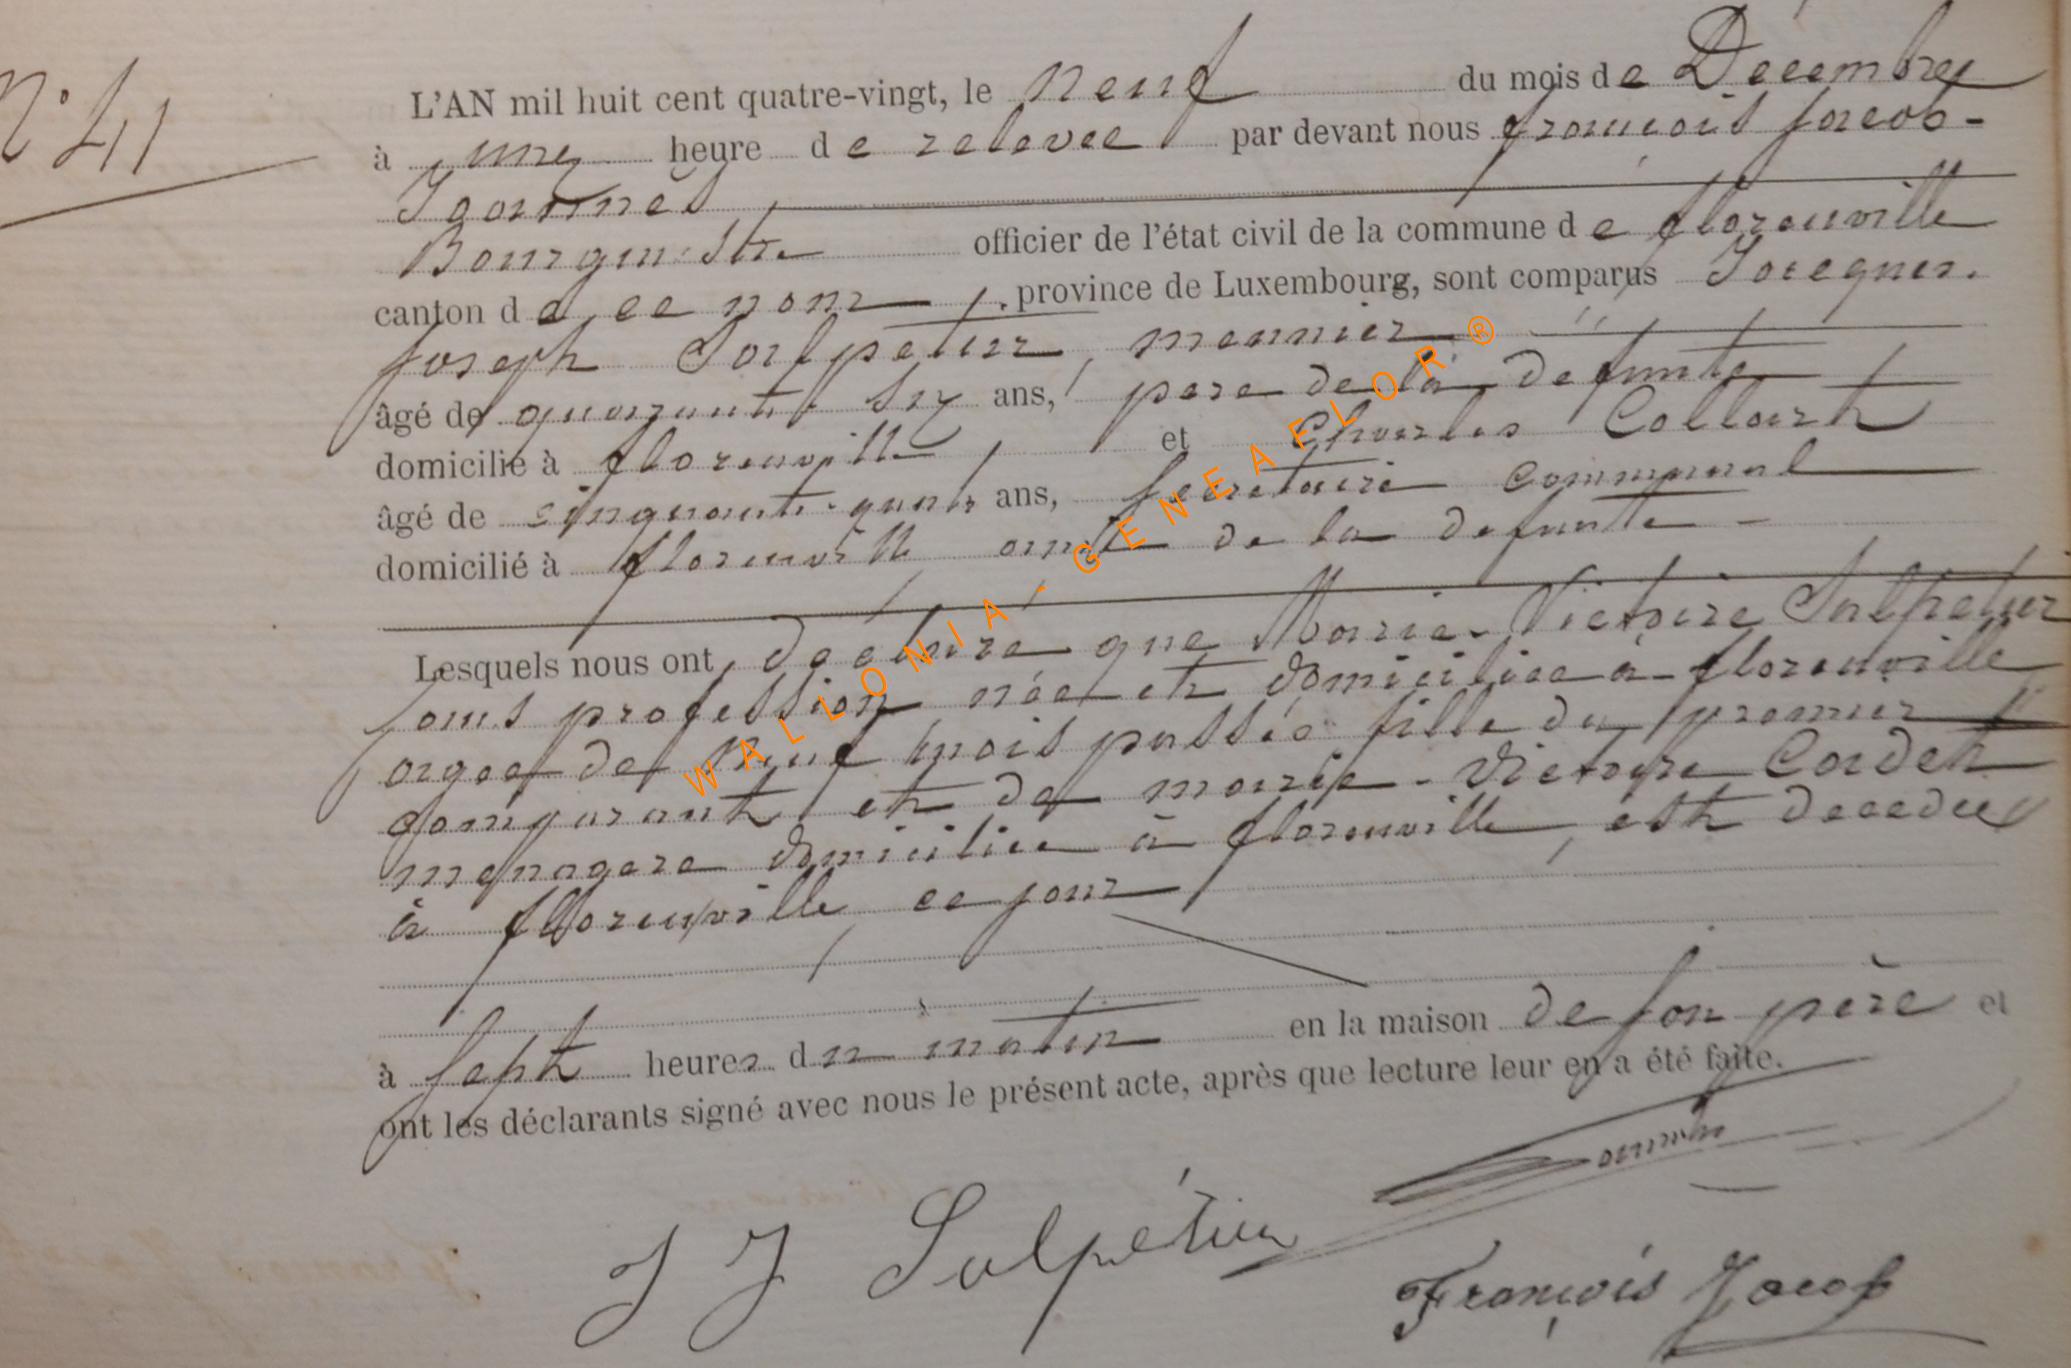 N° 41
L'AN mil huit cent quatre-vingt, le neuf du mois de Décembre
à une heure de relevée par devant nous françois Jacob-
Jeannès
Bourgmestre officier de l'état civil de la commune de florenville
canton de ce nom, province de Luxembourg, sont comparus Jacques.
Joseph Salpeteur, meunier
âgé de quarante six ans, pere de la défunte
domicilié à florenville, et Charles Collart
âgé de sinquante-quatre ans, secretaire communal
domicilié à florenville, ami de la defunte -
Lesquels nous ont déclaré que Marie-Victoire Salpeteur
sans profession née et domiciliée à florenville
agée de neuf mois passés fille du premier
comparant et de marie-Victoire Cordet
menagere domiciliée à florenville, est decedée
à florenville ce jour
à sept heures du matin en la maison de son père et
ont les déclarants signé avec nous le présent acte, après que lecture leur en a été faite.
J J Salpéteur
François Jacob
WALLONIA-GENEAFLOR®